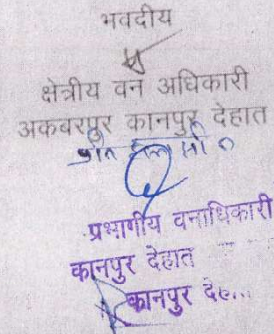 भवदीय
क्षेत्रीय वन अधिकारी
अकबरपुर कानपुर देहात
प्रभागीय वनाधिकारी
कानपुर देहात
कानपुर दे